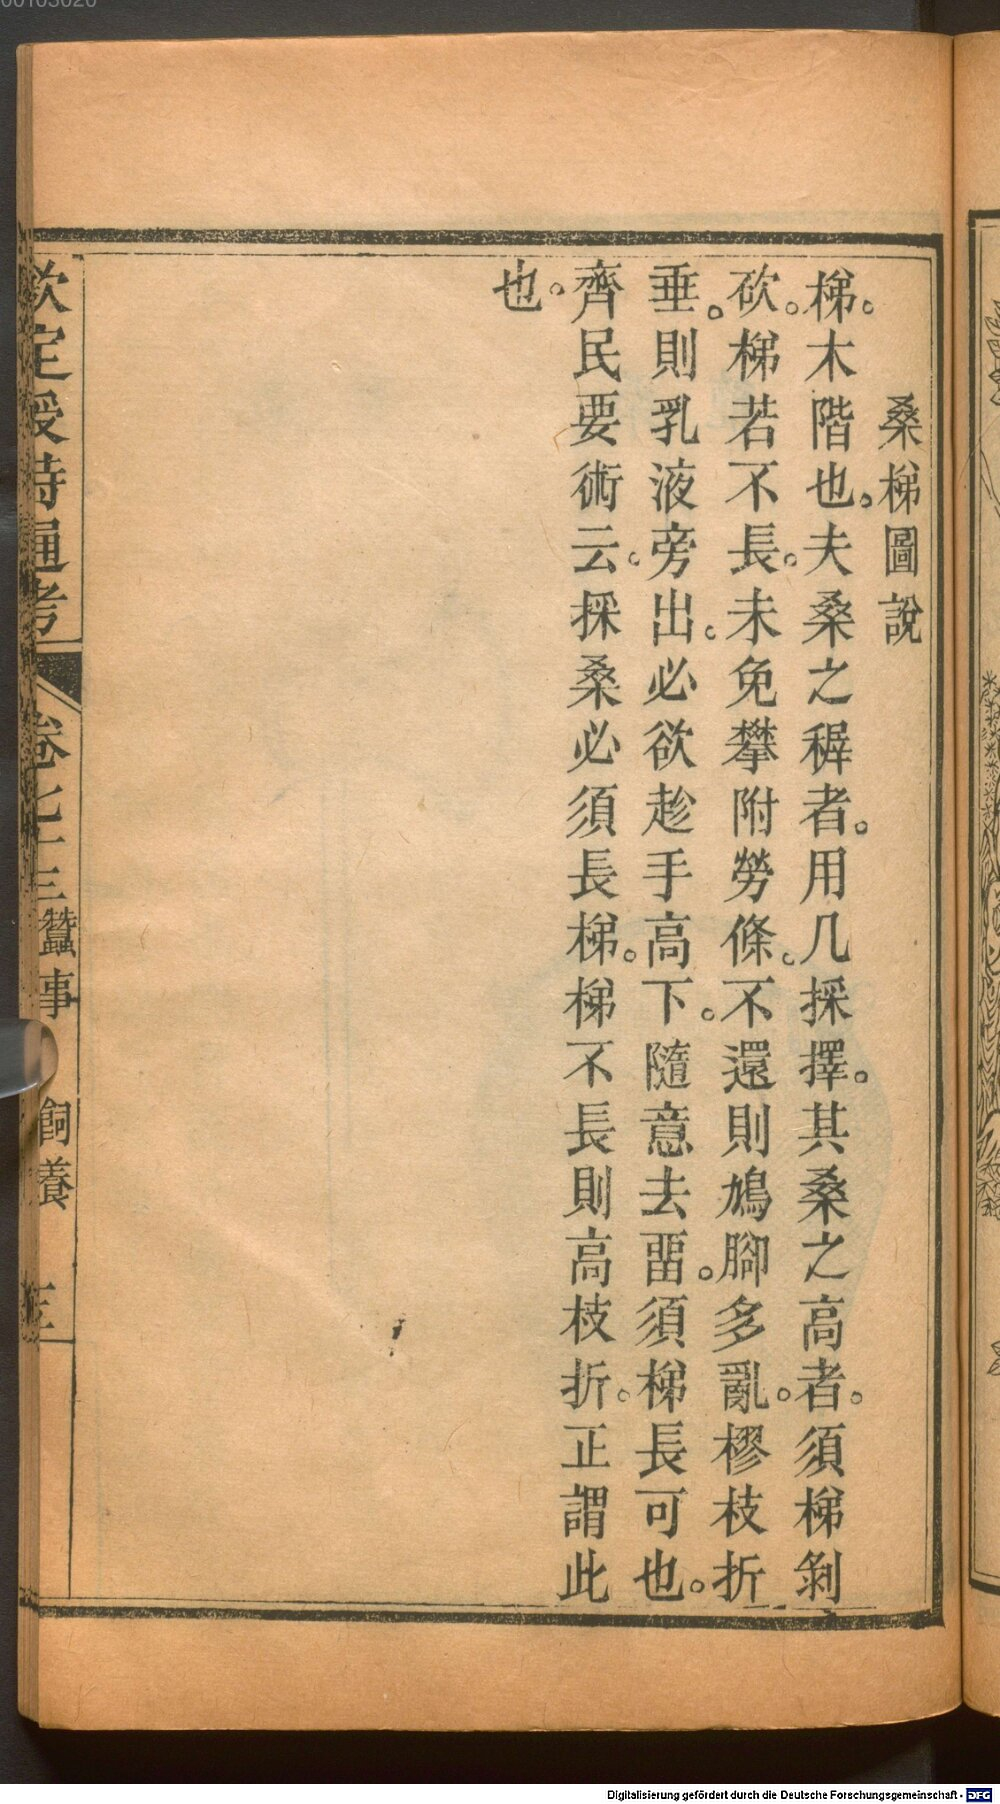 桑梯圖說
梯。木階也。夫桑之穉者。用几採擇。其桑之高者。須梯剝
砍。梯若不長。未免攀附勞條。不還則鳩腳多亂。樛枝折
垂。則乳液旁出。必欲趁手高下。隨意去畱。須梯長可也。
齊民要術云。採桑必須長梯。梯不長則高枝折。正謂此
也。
欽定授時通考
卷七十三
蠶事
飼養
Digitalisierung gefördert durch die Deutsche Forschungsgemeinschaft - DFG